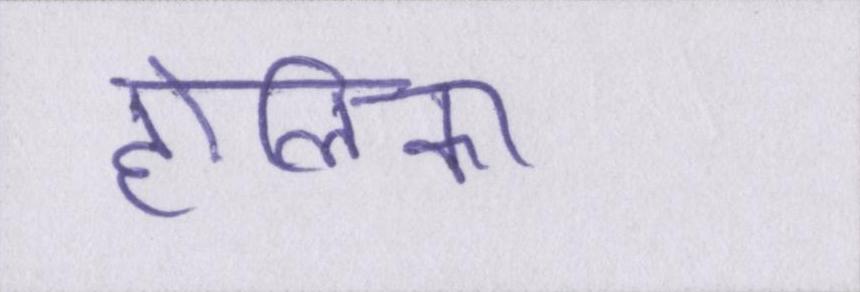 होलिका